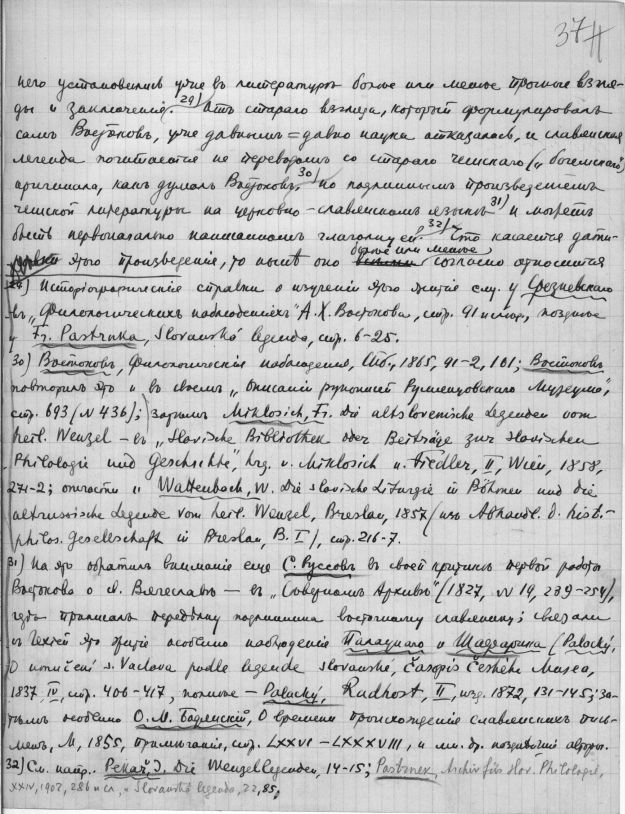 37
него установились уже въ литературѣ болѣе или менѣе прочные взгля-
ды и заключенія. 29) Отъ стараго взгляда, который формулировалъ
самъ Востоковъ, уже давнымъ=давно наука отказалась, и славянская
легенда почитается не переводомъ со стараго чешскаго („богемскаго")
оригинала, какъ думалъ Востоковъ, 30) но подлиннымъ произведеніемъ
чешской литературы на церковно-славянскомъ языкѣ 31) и можетъ
быть первоначально написаннымъ глаголицей. 32) Что касается дати-
ровки этого произведенія, то нынѣ оно болѣе или менѣе согласно относится
29) Исторіографическія справки о изученіи этого житія см. у Срезневскаго
въ „Филологическихъ наблюденіяхъ" А.Х. Востокова, стр. 91 и слѣд., позднѣе
у Fr. Pastrnka, Slovanská legenda, стр. 6-25.
30) Востоковъ, Филологическія наблюденія, Спб., 1865, 91-2, 101; Востоковъ
повторилъ это и въ своемъ „Описаніи рукописей Румянцовскаго Музеума",
стр. 693 (№ 436); затѣмъ Miklosich, Fr. Die altslovenische Legenden vom
heil. Wenzel – въ „Slavische Bibliothek oder Beiträge zur slavischen
Philologie und Geschichte", hrg. v. Miklosich u. Fiedler, II, Wien, 1858,
271-2; отчасти и Wattenbach, W. Die slavische Liturgie in Böhmen und die
altrussische Legende vom heil. Wenzel, Breslau, 1857 (изъ Abhandl. d. hist.-
philos. Gesellschaft in Breslau, B. I), стр. 216-7.
31) На это обратилъ вниманіе еще С. Руссовъ въ своей критикѣ первой работы
Востокова о св. Вячеславѣ – въ „Сѣверномъ Архивѣ" (1827, № 19, 239-254),
гдѣ приписалъ передѣлку подлинника восточному славянину; связали
съ Чехіей это житіе особенно наблюденія Палацкаго и Шафарика (Palacký,
O umučení s. Vaclova podle legende slovanské, Časopis Českého Musea,
1837, IV, стр. 406-417, позднѣе – Palacký, Radhost, II, изд. 1872, 131-145; за-
тѣмъ особенно О.М. Бодянскій, О времени происхожденія славянскихъ пись-
менъ, М, 1855, примѣчанія, стр. LXXVI – LXXXVIII, и мн. др. позднѣйшіе авторы.
32) См. напр. Пекаž, J. Die Wenzellegenden, 14-15; Pastrnek, Archiv für slav. Philologie,
XXIV, 1902, 286 и сл., и Slovanská legenda, 22, 85;